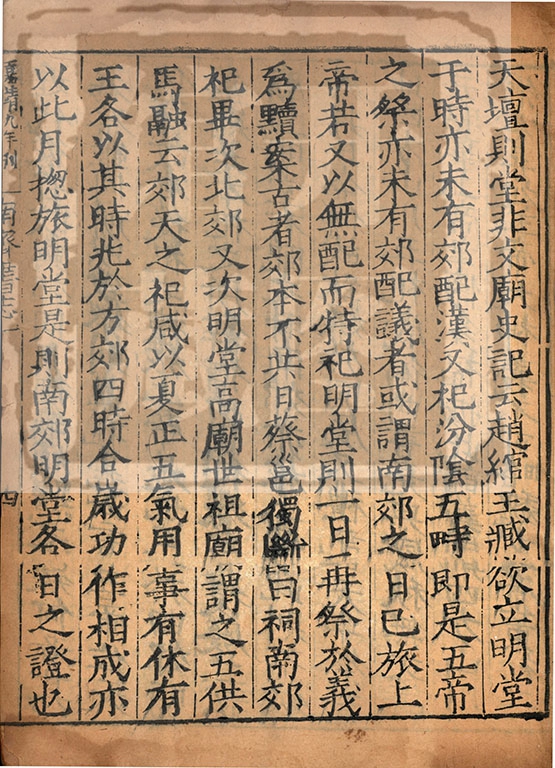 天壇則堂非文廟史記云趙綰王臧欲立明堂
于時亦未有郊配漢又祀汾隂五畤即是五帝
之祭亦未有郊配議者或謂南郊之日已旅上
帝若又以無配而特祀明堂則一日再祭於義
為黷案古者郊本不共日蔡邕獨斷曰祠南郊
祀畢次北郊又次明堂高廟世祖廟謂之五供
馬融云郊天之祀咸以夏正五氣用事有休有
王各以其時兆於方郊四時合歲功作相成亦
以此月揔旅明堂是則南郊明堂各日之證也
嘉靖九年刊
南齊書志一
四